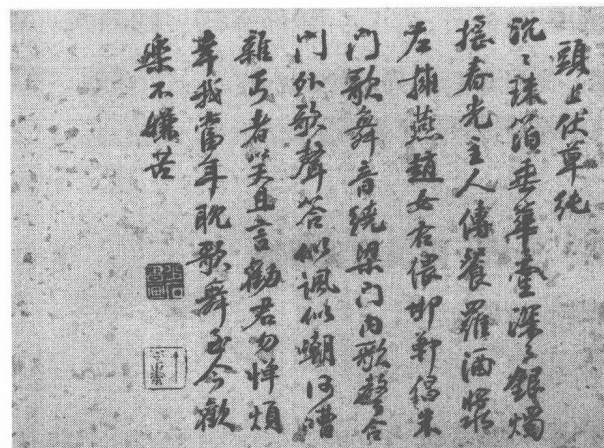 頭上伏草純
沉〻珠箔垂華堂深〻銀燭
搖春光主人傳餐羅酒漿
左擁燕趙女右偎邯鄲倡朱
門歌舞音繞梁門內歌聲合
門外歌聲答似諷似嘲何嘈
雜丐者笑且言勸君勿憚煩
率我當年耽歌舞至今歡
樂不嫌苦